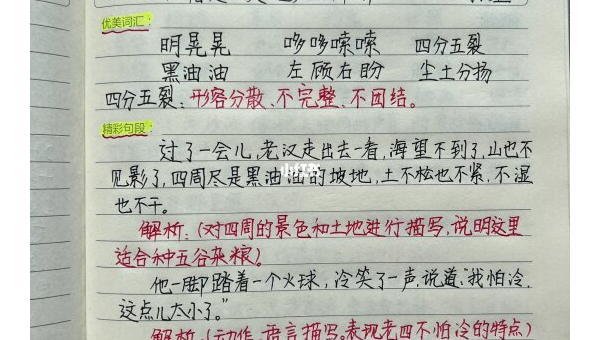 优美词汇:
明晃晃 哆哆嗦嗦 四分五裂
黑油油 左顾右盼 尘土分扬
四分五裂:形容分散、不完整、不团结。
精彩句段:
过了一会儿,老汉走出去一看,海望不到了,山也不
见影了,四周尽是黑油油的坡地,土不松也不紧,不湿
也不干。
小红书
解析:(对四周的景色和土地进行描写,说明这里
适合种五谷杂粮)
他一脚踏着一个火球,冷笑了一声,说道:“我怕冷,
这点儿太小了。”
解析:(动作、语言描写。表现老四不怕冷的特点)